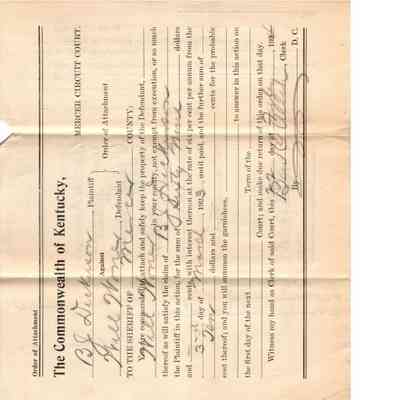 Order of Attachment
The Commonwealth of Kentucky,
MERCER CIRCUIT COURT.
B J Dickinson Plaintiff
Against Order of Attachment
Defendant
TO THE SHERIFF OF Mercer COUNTY:
You are commanded to attach and safely keep the property of the Defendant,
in your county, not exempt from execution, or so much
thereof as will satisfy the claim of B J Dickinson
the Plaintiff in this action, for the sum of Sixty Nine dollars
and cents, with interest thereon at the rate of six per cent per annum from the
3rd day of March 1923, until paid, and the further sum of
Ten dollars and cents for the probable
cost thereof; and you will summon the garnishees,
to answer in this action on
the first day of the next Term of the
Court; and make due return of this order on that day.
Witness my hand as Clerk of said Court, this day of 192
Clerk
By D. C.